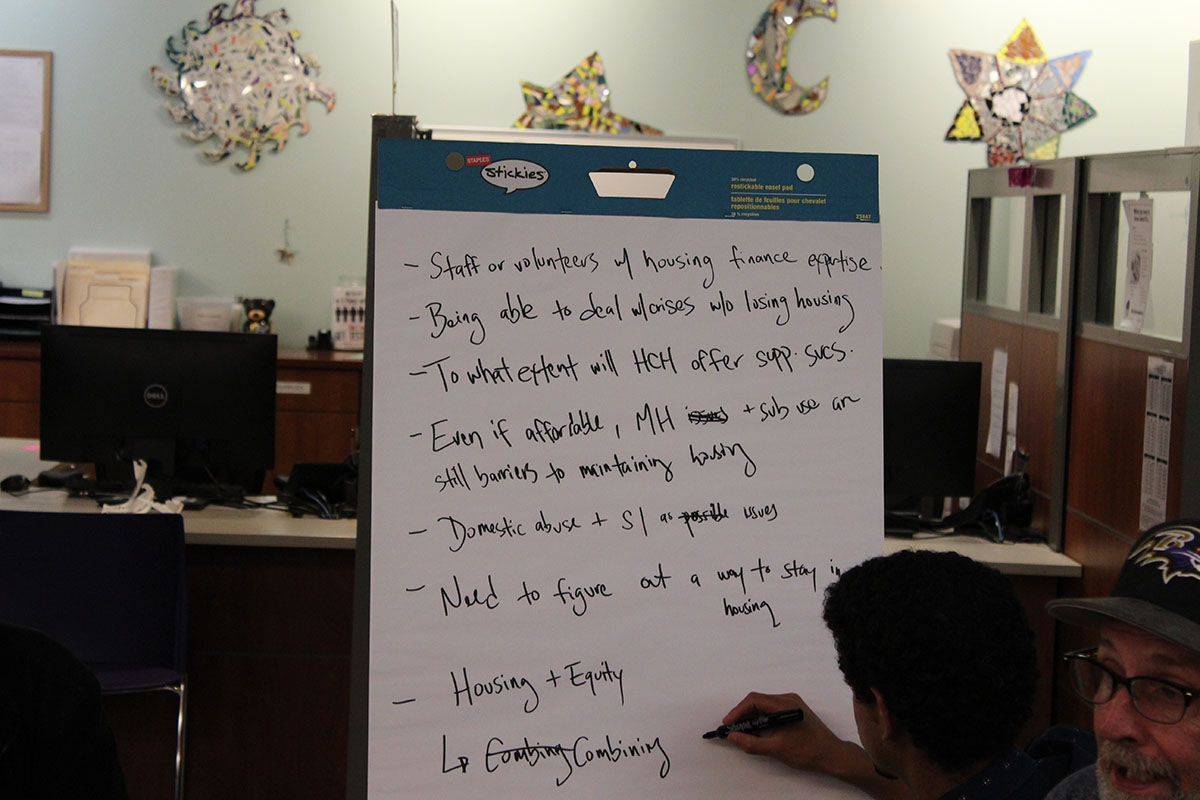 STAPLES
stickies
restickable easel pad
tablette de feuilles pour chevalet
repositionnables
23447
- Staff or volunteers w/ housing finance expertise.
- Being able to deal w/crises w/o losing housing
- To what extent will HCH offer supp. svcs.
- Even if affordable, MH issues + sub use are
still barriers to maintaining housing
- Domestic abuse + SI as possible issues
- Need to figure out a way to stay in
housing
- Housing + Equity
↳ Combing Combining
DELL